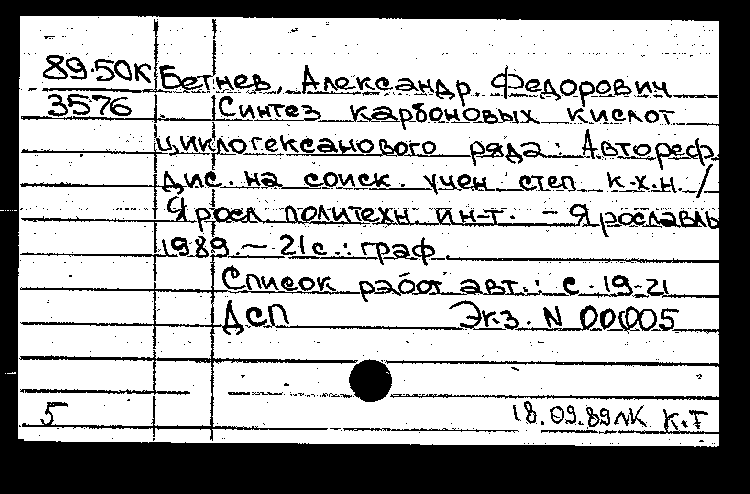 89-50К Бетнев, Александр Федорович
3576 Синтез карбоновых кислот
циклогексанового ряда: Автореф.
дис. на соиск. учен. степ. к.х.н. /
Яросл. политехн. ин-т. - Ярославль
1989. - 21с.: граф.
Список работ авт.: с. 19-21
ДСП Экз. N 00005
5 18.09.89 ЛК К.Т